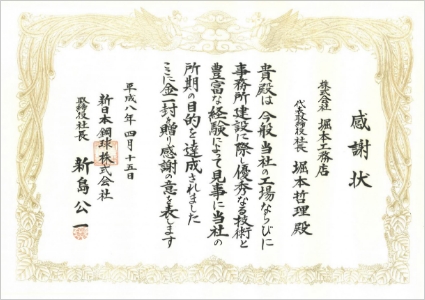 感謝状
株式会社 堀本工務店
代表取締役社長 堀本哲理殿
貴殿は今般当社の工場ならびに
事務所建設に際し優秀なる技術と
豊富な経験によって見事に当社の
所期の目的を達成されました
こゝに金一封を贈り感謝の意を表します
平成八年四月十五日
新日本鋼球株式会社
取締役社長 新島公一